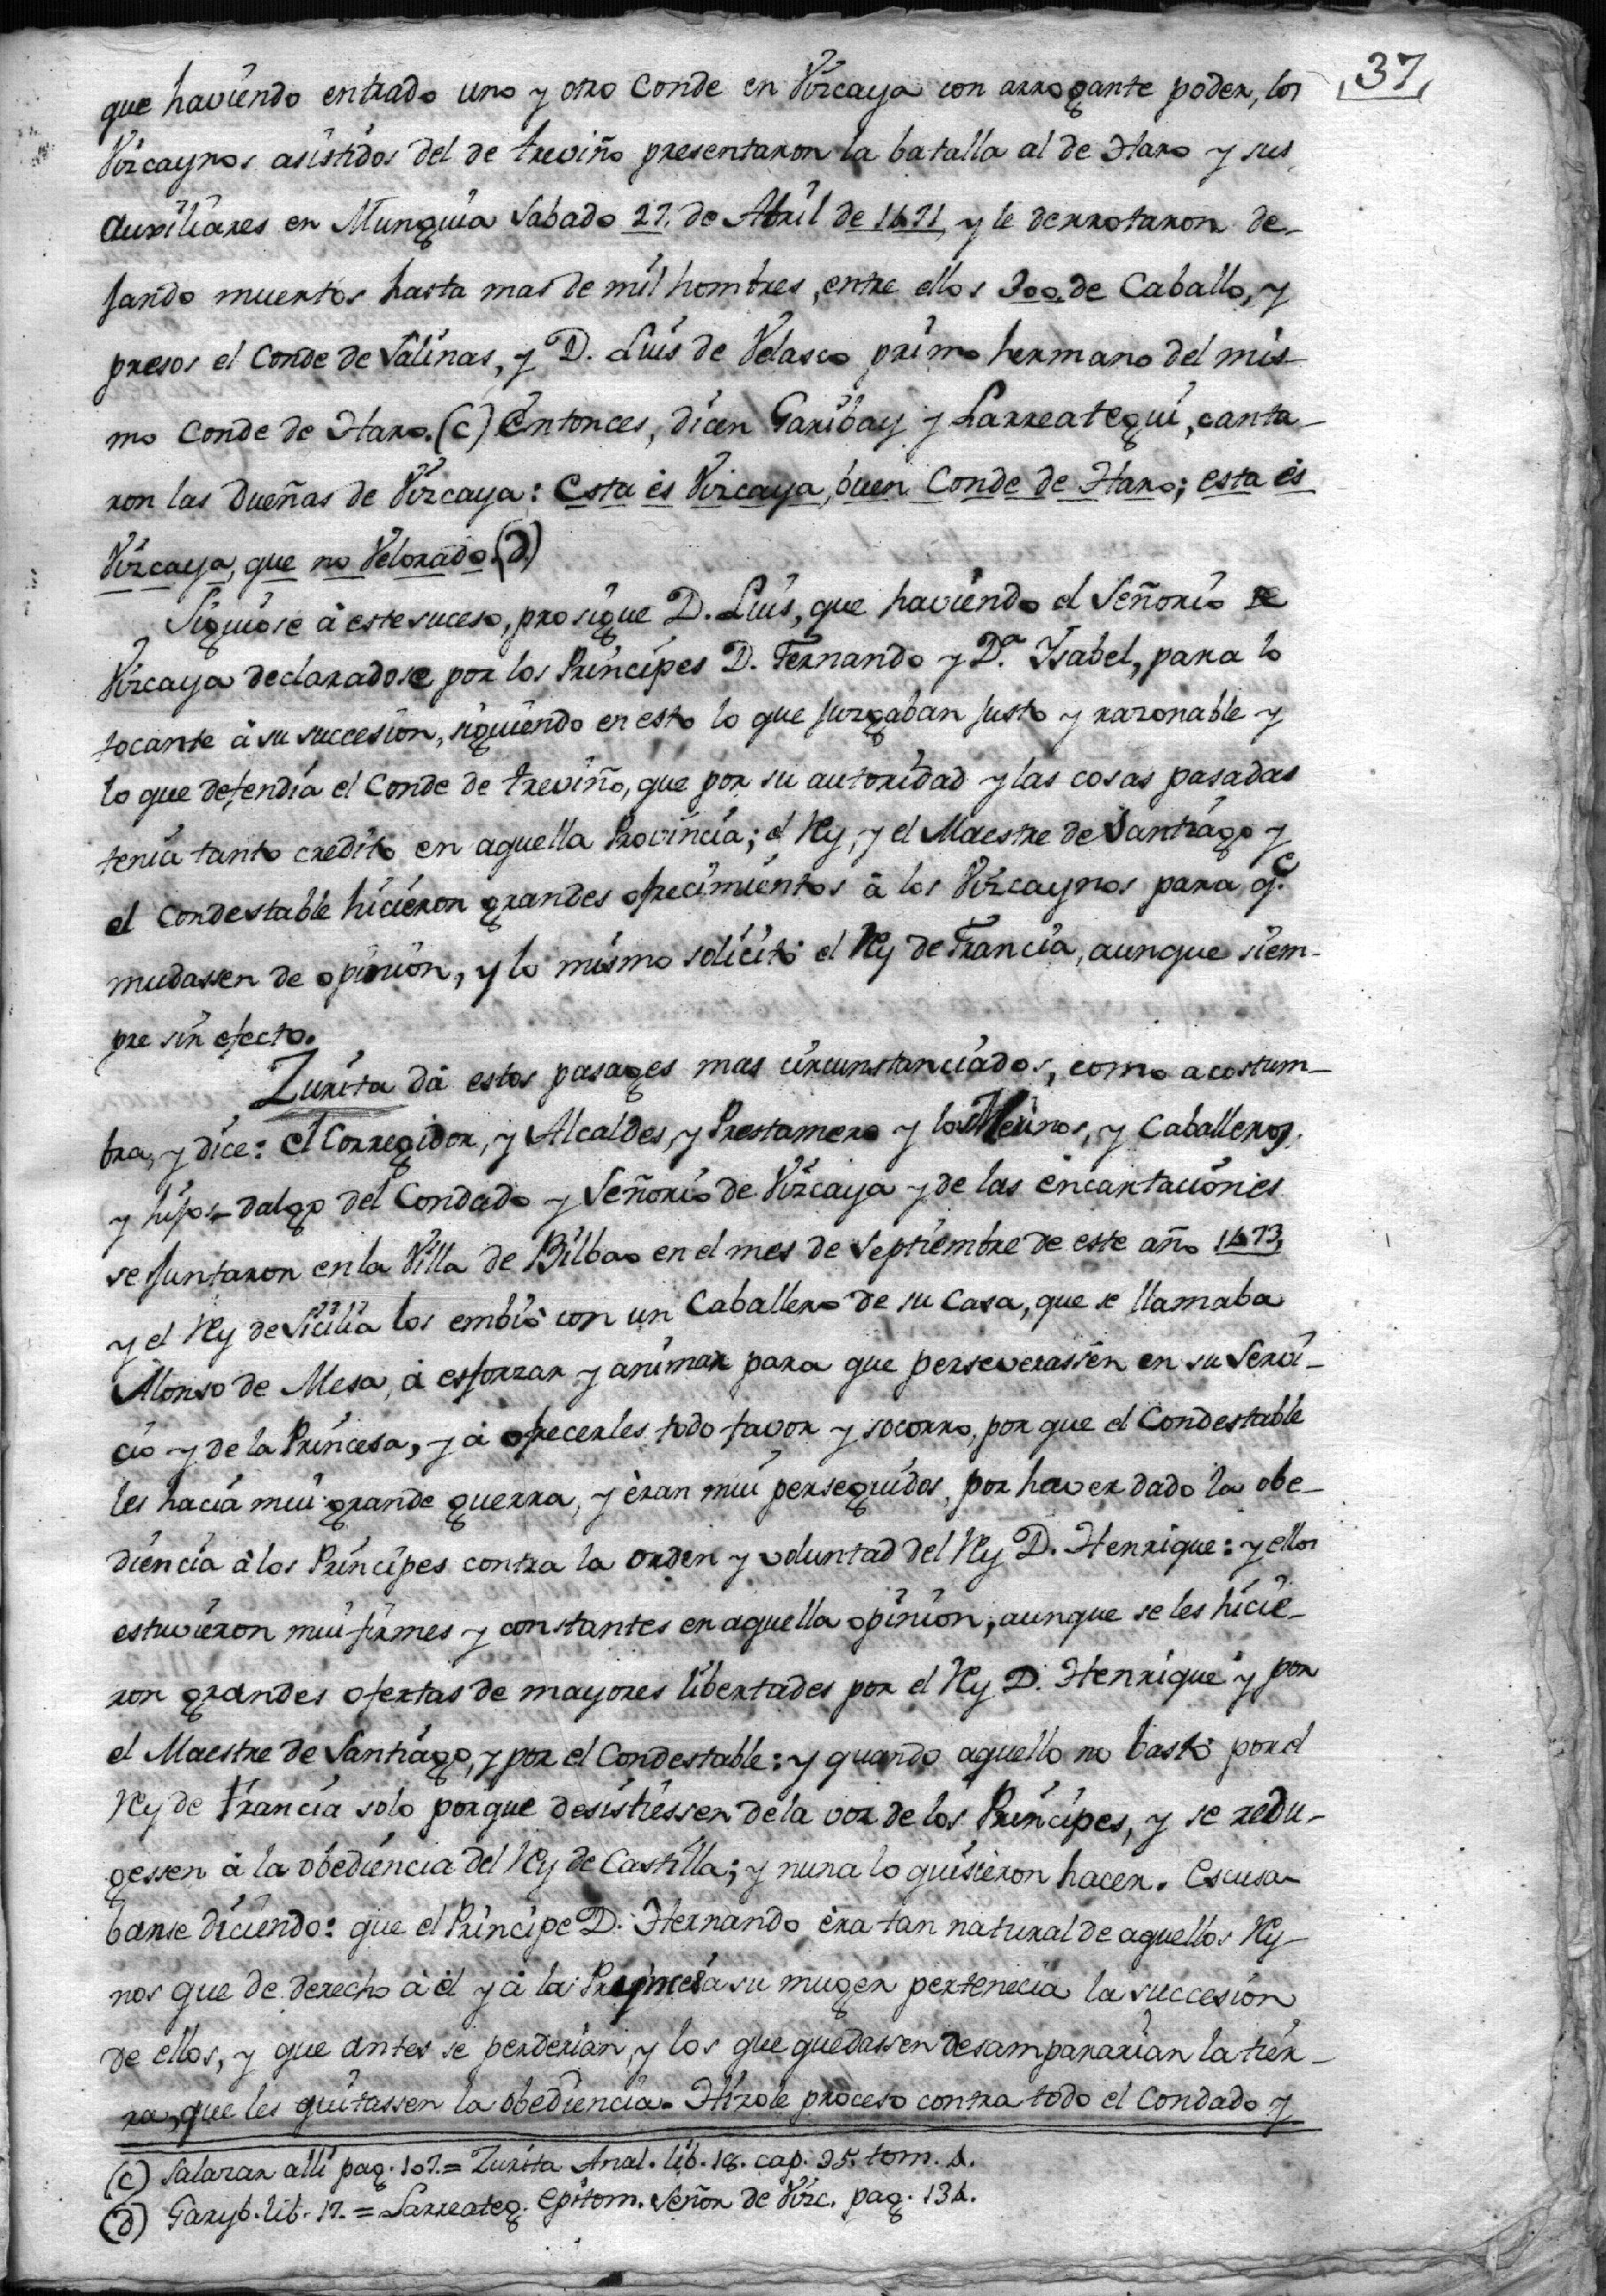 37
que haviendo entrado uno y otro Conde en Vizcaya con arrogante poder, los
Vizcaynos asistidos del de treviño presentaron la batalla al de Haro y sus
auxiliares en Munguia Sabado 27. de Abril de 1471, y le derrotaron de-
jando muertos hasta mas de mil hombres, entre ellos 300. de Caballo, y
presos el Conde de Salinas, y D. Luis de Velasco primo hermano del mis-
mo Conde de Haro. (c) Entonces, dicen Garibay y Larreategui, canta-
ron las Dueñas de Vizcaya: Esta es Vizcaya, buen Conde de Haro; esta es
Vizcaya, que no Velorado. (d)
Siguiose à este suceso, prosigue D. Luis, que haviendo el Señorio de
Vizcaya declaradose por los Principes D. Fernando y D.ª Isabel, para lo
tocante à su succesion, siguiendo en esto lo que juzgaban justo y razonable y
lo que defendia el Conde de treviño, que por su autoridad y las cosas pasadas
tenia tanto credito en aquella Provincia; el Rey, y el Maestre de Santiago y
el Condestable hicieron grandes ofrecimientos à los Vizcaynos para q.e
mudassen de opinion, y lo mismo solicitò el Rey de Francia, aunque siem-
pre sin efecto.
Zurita dà estos pasages mas circunstanciados, como acostum-
bra, y dice: el Corregidor, y Alcaldes, y Prestamero y los Merinos, y Caballeros,
y hijos-dalgo del Condado y Señorio de Vizcaya y de las encartaciones
se juntaron en la Villa de Bilbao en el mes de Septiembre de este año 1473,
y el Rey de Sicilia los embiò con un Caballero de su Casa, que se llamaba
Alonso de Mesa, à esforzar y animar para que perseverassen en su Servi-
cio y de la Princesa, y à ofrecerles todo favor y socorro, por que el Condestable
les hacia mui grande guerra, y èran mui perseguidos, por haver dado la obe-
diencia à los Principes contra la orden y voluntad del Rey D. Henrique: y ellos
estuvieron mui firmes y constantes en aquella opinion, aunque se les hicie-
ron grandes ofertas de mayores libertades por el Rey D. Henrique y por
el Maestre de Santiago, y por el Condestable: y quando aquello no bastò por el
Rey de Francia solo porque desistiessen de la voz de los Principes, y se redu-
gessen à la obediencia del Rey de Castilla; y nunca lo quisieron hacer. Escusa-
banse diciendo: que el Principe D. Hernando èra tan natural de aquellos Rey-
nos que de derecho à èl y à la Princesa su muger pertenecia la succesion
de ellos, y que antes se perderian, y los que quedassen desampararian la tier-
ra, que les quitassen la obediencia. Hizole proceso contra todo el Condado y
(c) Salazar alli pag. 107. = Zurita Anal. lib. 18. cap. 35. tom. 4.
(d) Garyb. lib. 17. = Larreateg. Epitom. Señor de Vizc. pag. 134.